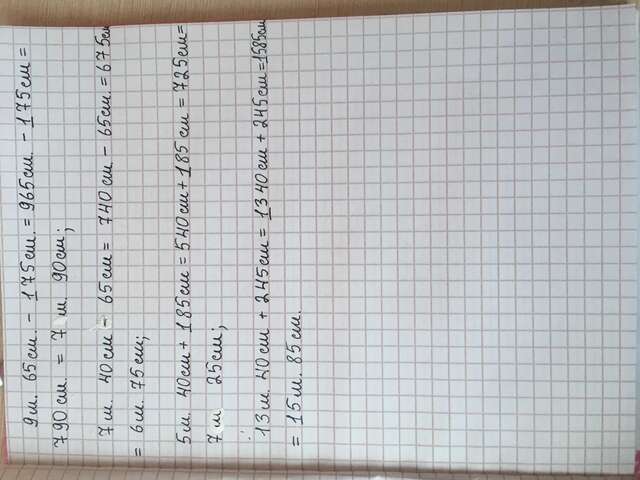 9м. 65см. - 175см. = 965см. - 175см =
790 см. = 7 м. 90см;
7м. 40см - 65см = 740см - 65см. = 675см
= 6м. 75см;
5м. 40см + 185см = 540см + 185 см = 725см =
7 м 25см;
13м. 40см + 245см = 1340см + 245см = 1585см
= 15м. 85см.